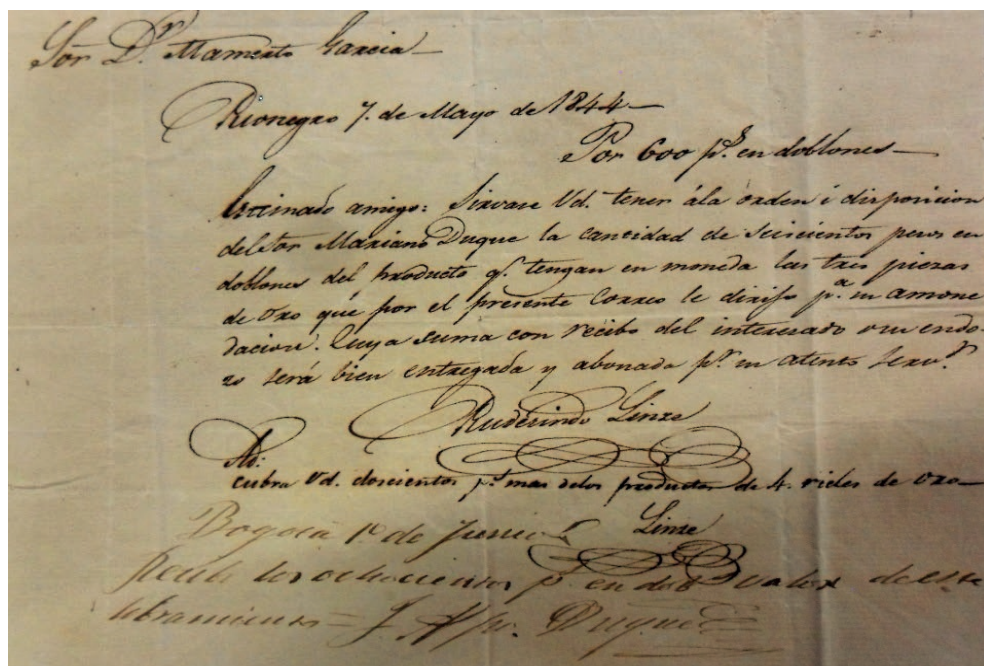 Sor. Dn. Mamerto Garcia
Rionegro 7. de Mayo de 1844
Por 600 ps. en doblones
Estimado amigo: Sirvase Vd. tener ála orden i disposicion
del Sor Mariano Duque la cantidad de seiscientos pesos en
doblones del producto qe. tengan en moneda las tres piezas
de oro que por el presente Correo le dirijo pa. su amone
dacion. Cuya suma con recibo del interesado ó su endo-
zo será bien entregada y abonada pr. su atento servr.
Ruderindo Linze
Ad:
cubra Vd. doscientos ps. mas delos productos de 4. rieles de oro
Linze
Bogotá 1o. de Junio
Recibi los ochocientos ps. en valor de este
libramiento = Duque